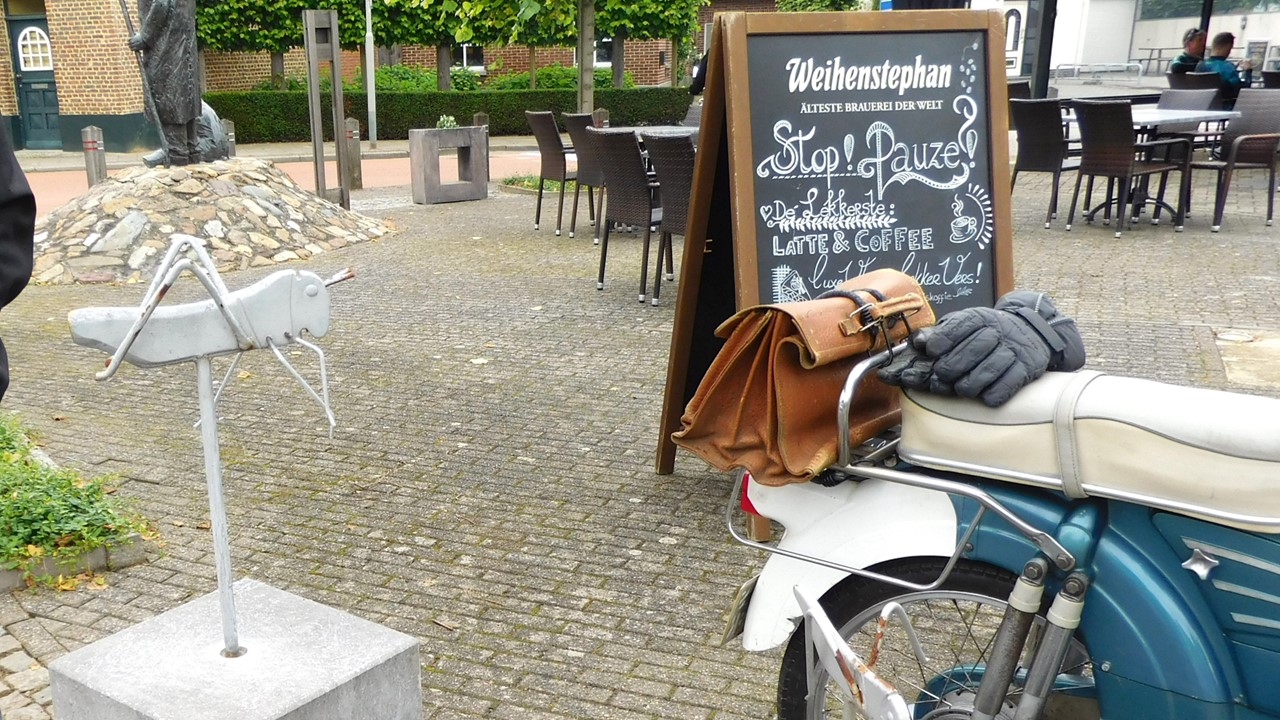 Weihenstephan
ÄLTESTE BRAUEREI DER WELT
Stop! Pauze!
De Lekkerste:
LATTE & COFFEE
Lekker Vers!